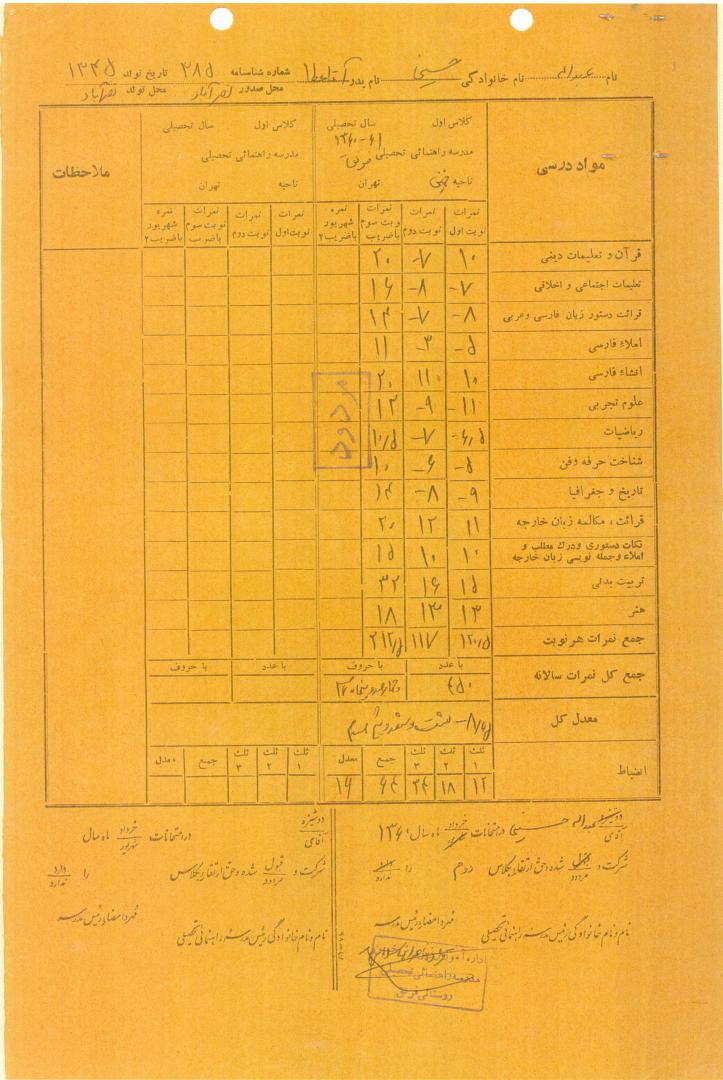 نام عبداله نام خانوادگی حسینی نام پدر شماره شناسنامه ۳۸۵ تاریخ تولد ۱۳۴۵
محل صدور نصرآباد محل تولد نصرآباد
مواد درسی
کلاس اول سال تحصیلی
۱۳۶۰-۶۱
مدرسه راهنمائی تحصیلی
ناحیه تهران
کلاس اول سال تحصیلی
مدرسه راهنمائی تحصیلی
ناحیه تهران
ملاحظات
نمرات نوبت اول نمرات نوبت دوم نمرات نوبت سوم باضریب نمره شهریور باضریب۲ نمرات نوبت اول نمرات نوبت دوم نمرات نوبت سوم باضریب نمره شهریور باضریب ۲
قرآن و تعلیمات دینی ۱۰ ۷- ۲۰
تعلیمات اجتماعی و اخلاقی ۷- ۸- ۱۶
قرائت دستور زبان فارسی وعربی ۸- ۷- ۱۴
املاء فارسی ۵- ۳- ۱۱
انشاء فارسی ۱۰ ۱۱ ۲۰
علوم تجربی ۱۱- ۹- ۱۲
ریاضیات ۶٫۵- ۷- ۱۰٫۵
شناخت حرفه وفن ۵- ۶- ۱۰
تاریخ و جغرافیا ۹- ۸- ۱۴
قرائت، مکالمه زبان خارجه ۱۱ ۱۲ ۲۰
نکات دستوری ودرك مطلب و املاء وجمله نویسی زبان خارجه ۱۰ ۱۰ ۱۵
تربیت بدنی ۱۵ ۱۶ ۳۲
هنر ۱۳ ۱۳ ۱۸
مردود
جمع نمرات هر نوبت ۱۲۰٫۵ ۱۱۷ ۲۱۲٫۵
جمع کل نمرات سالانه با عدد با حروف با عدد با حروف
۴۵۰
معدل کل
انضباط ثلث ۱ ثلث ۲ ثلث ۳ جمع معدل ثلث ۱ ثلث ۲ ثلث ۳ جمع معدل
۱۲ ۱۸ ۳۴ ۶۴ ۱۶
دوشیزه آقای عبداله حسینی در امتحانات خرداد شهریور ماه سال ۱۳۶۰
شرکت و قبول مردود شده و حق ارتقاء بکلاس دوم را دارد ندارد
مهر و امضاء رئیس مدرسه
نام و نام خانوادگی رئیس مدرسه راهنمائی تحصیلی
مدرسه راهنمائی تحصیلی
دوشیزه آقای در امتحانات خرداد شهریور ماه سال
شرکت و قبول مردود شده و حق ارتقاء بکلاس را دارد ندارد
مهر و امضاء رئیس مدرسه
نام و نام خانوادگی رئیس مدرسه راهنمائی تحصیلی